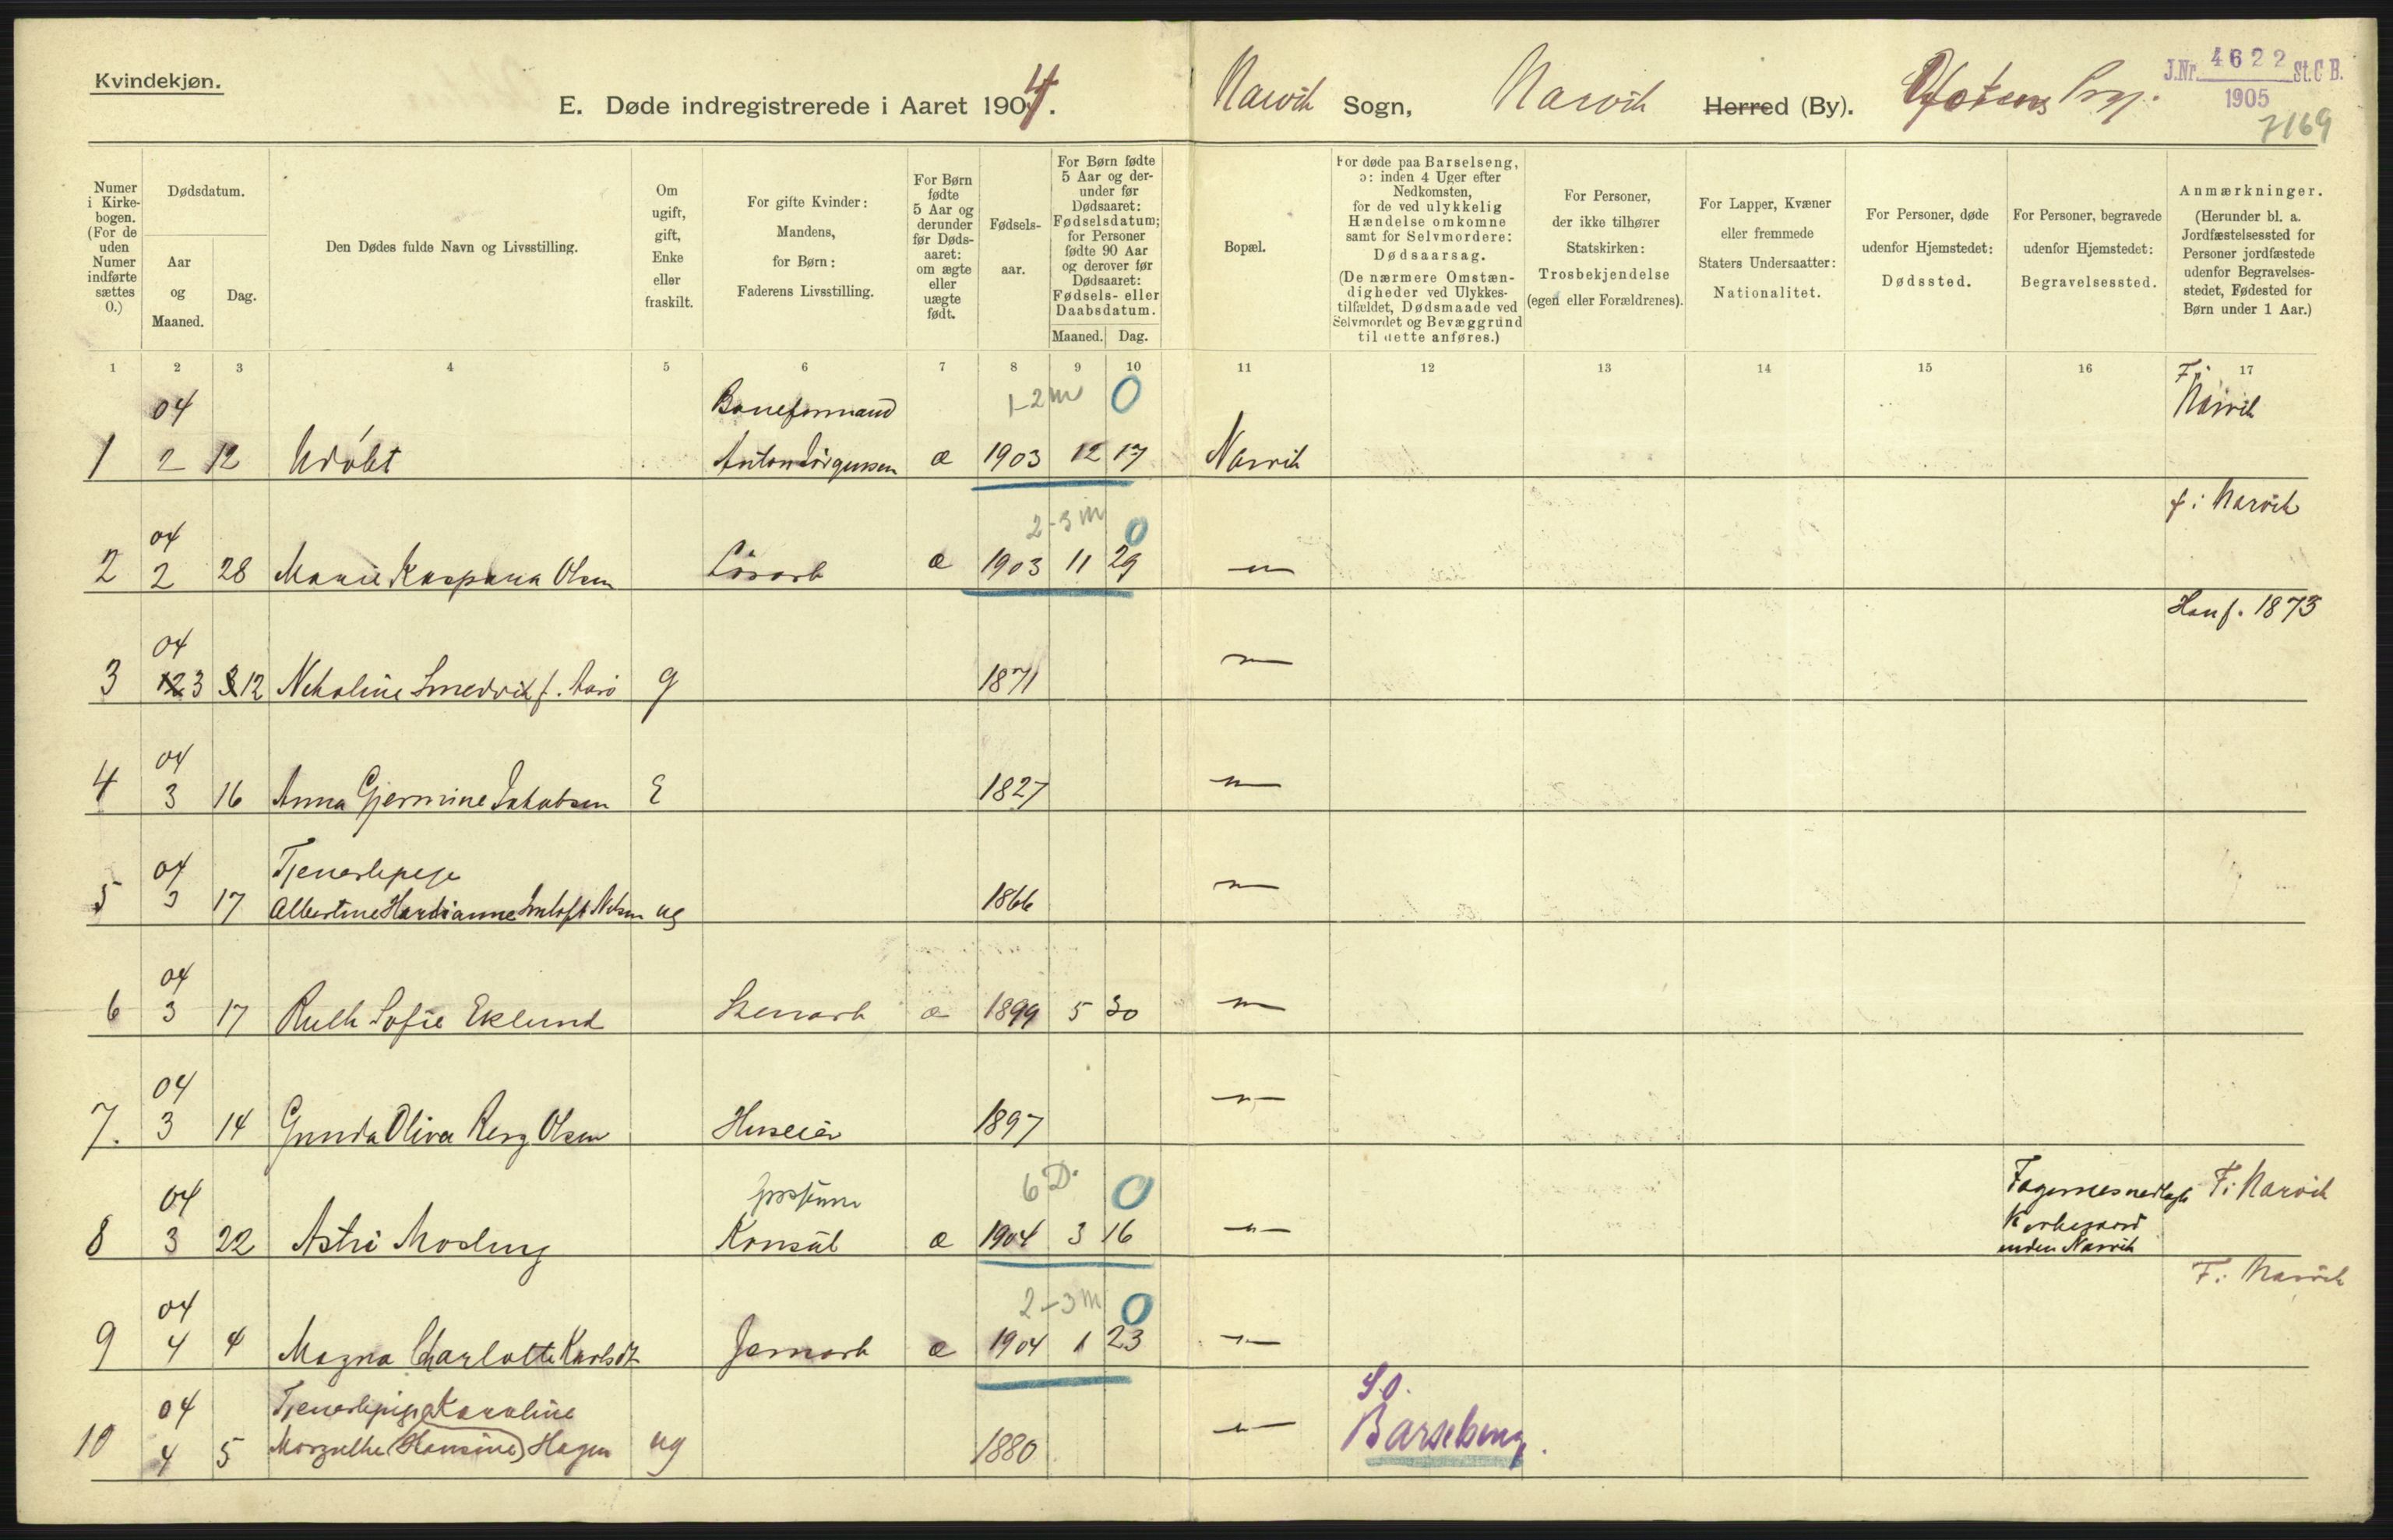 Kvindekjøn.
E. Døde indregistrerede i Aaret 1904.
Narvik Sogn, Narvik Herred (By). Ofotens Prgj.
J.Nr. 4622 St.C B.
1905
7169
Numer i Kirkebogen. (For de uden Numer indførte sættes 0.)
Dødsdatum.
Aar og Maaned.
Dag.
Den Dødes fulde Navn og Livsstilling.
Om ugift, gift, Enke eller fraskilt.
For gifte Kvinder: Mandens, for Børn: Faderens Livsstilling.
For Børn fødte 5 Aar og derunder før Dødsaaret: om ægte eller uægte født.
Fødselsaar.
For Børn fødte 5 Aar og derunder før Dødsaaret: Fødselsdatum; for Personer fødte 90 Aar og derover før Dødsaaret: Fødsels- eller Daabsdatum.
Maaned. Dag.
Bopæl.
For døde paa Barselseng, ɔ: inden 4 Uger efter Nedkomsten, for de ved ulykkelig Hændelse omkomne samt for Selvmordere: Dødsaarsag.
(De nærmere Omstændigheder ved Ulykkestilfældet, Dødsmaade ved Selvmordet og Bevæggrund til dette anføres.)
For Personer, der ikke tilhører Statskirken: Trosbekjendelse (egen eller Forældrenes).
For Lapper, Kvæner eller fremmede Staters Undersaatter: Nationalitet.
For Personer, døde udenfor Hjemstedet: Dødssted.
For Personer, begravede udenfor Hjemstedet: Begravelsessted.
Anmærkninger.
(Herunder bl. a. Jordfæstelsessted for Personer jordfæstede udenfor Begravelsesstedet, Fødested for Børn under 1 Aar.)
1 2 3 4 5 6 7 8 9 10 11 12 13 14 15 16 17
04 Baneformand 1-2 m 0 F. Narvik
1 2 12 Udøbt Anton Jörgensen æ 1903 12 17 Narvik
04 2-3 m 0 f: Narvik
2 2 28 Marie Kaspara Olsen Lösarb æ 1903 11 29 -"-
04 Han f. 1873
3 12 3 3 12 Nikoline Smedvik f. g 1871 -"-
04
4 3 16 Anna Gjermine Jakobsen E 1827 -"-
04 Tjenestepige
5 3 17 Albertine Nilsen ug 1866 -"-
04
6 3 17 Ruth Sofie Eklund æ 1899 5 30 -"-
04
7. 3 14 Gunda Oliva Berg Olsen Huseier 1897 -"-
04 6 D. 0 F: Narvik
8 3 22 Astri Mosling Konsul æ 1904 3 16 -"- Fagernes nedlagte Kirkegaard Narvik
04 2-3 m 0 F: Narvik
9 4 4 Magna Charlotte Karlsdt Jernarb æ 1904 1 23 -"-
04 Tjenestepige Karoline S.O.
10 4 5 Margrethe (Hansine) Hagen ug 1880 -"- Barselseng.